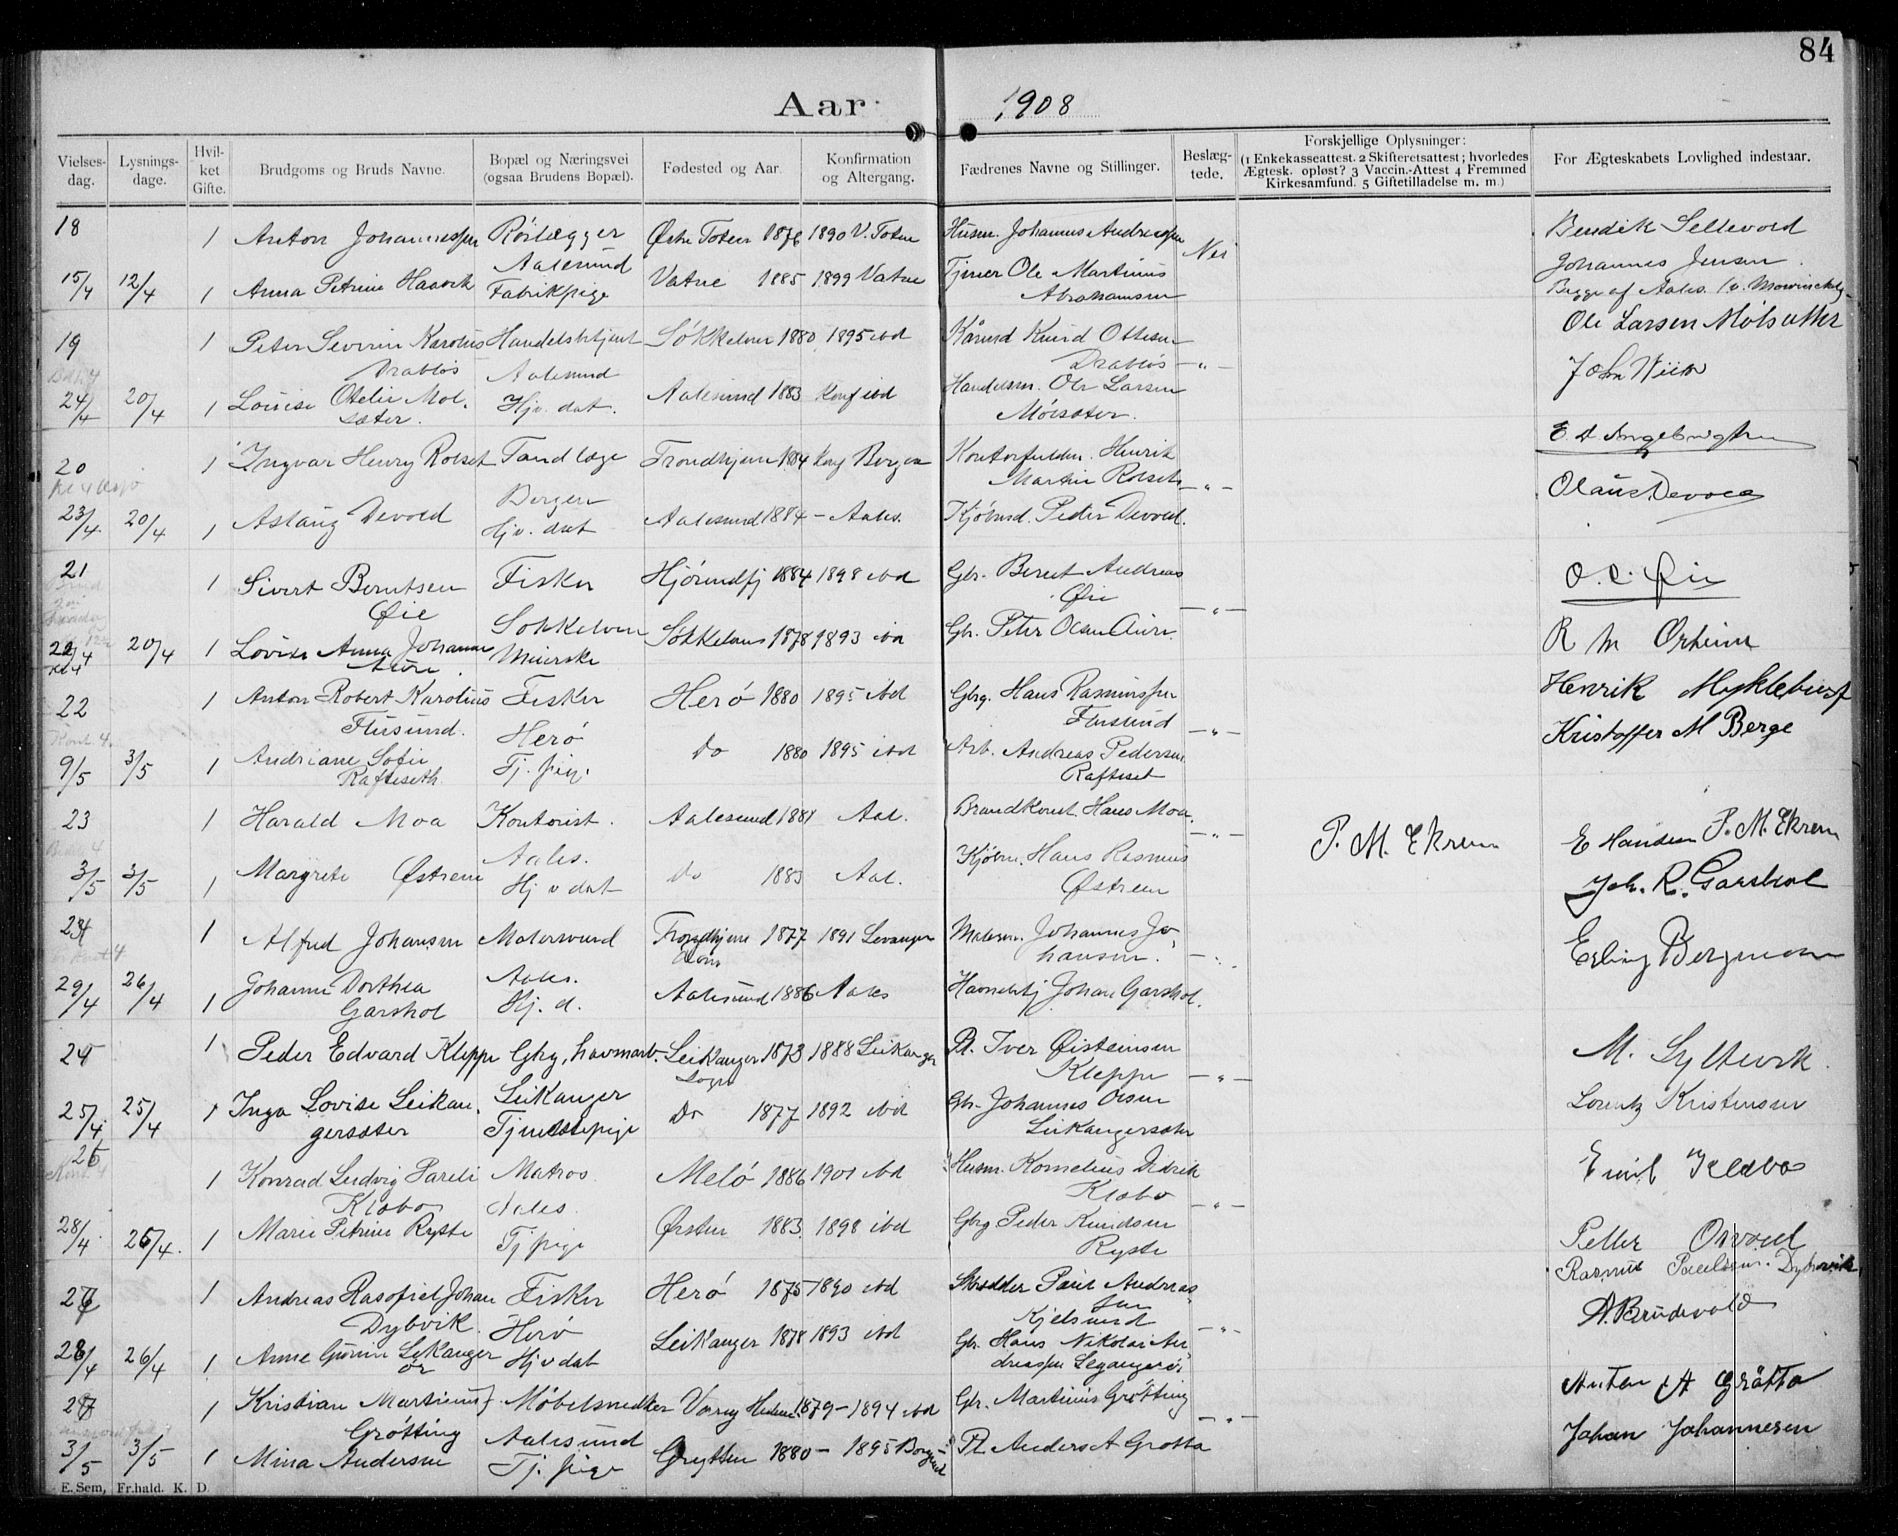 84
Aar 1908
Vielses-dag. Lysnings-dage. Hvil-ket Gifte. Brudgoms og Bruds Navne. Bopæl og Næringsvei (ogsaa Brudens Bopæl). Fødested og Aar. Konfirmation og Altergang. Fædrenes Navne og Stillinger. Beslæg-tede. Forskjellige Oplysninger: (1 Enkekasseattest. 2 Skifteretsattest; hvorledes Ægtesk. opløst? 3 Vaccin.-Attest 4 Fremmed Kirkesamfund. 5 Giftetilladelse m. m.) For Ægteskabets Lovlighed indestaar.
18 1 Anton Johannessen Rørlægger Østre Toten 1876 1890 V. Toten Husm. Johannes Andressen Nei Bendik Sellevold
Aalesund Johannes Jensen
15/4 12/4 1 Anna Petrine Haavik Fabrikpige Vatne 1885 1899 Vatne Tjener Ole Martinus Begge af Aales.
Abrahamsen
19 1 Peter Severin Karolus Handelsbetjent Søkkelven 1880 1895 ibd Kårmd Knud Ottesen Ole Larsen Mölsætter
Drabløs Aalesund Drabløs -"- John Wiik
24/4 20/4 1 Louise Otelie Mol- Hjv. dat. Aalesund 1883 Konf ibd Handelsm. Ole Larsen
sæter. Molsæter.
20 1 Ingvar Henry Rolset Tandlæge Trondhjem 1884 Konf Bergen Kontorfuldm. Henrik E. A. Ingebrigtsen
Bergen Martin Rolseth -"- Olaus Devold
23/4 20/4 1 Aslaug Devold Hjv. dat Aalesund 1884 - Aales. Kjøbmd. Peder Devold.
21 1 Sivert Berntsen Fisker Hjørundfj 1884 1898 ibd Gbr. Bernt Andreas O. C. Øie
Øie Søkkelven Øie -"-
22/4 20/4 1 Lovise Anna Johanne Meierske Søkkelven 1878 1893 ibd Gbr. Peter Olsen Aure. R M Ørheim
Aure
22 1 Anton Robert Karolius Fisker Herø 1880 1895 ibd Gbrg. Hans Rasmussen Henrik Myklebust
Flusund. Herø Flusund -"- Kristoffer M Berge
9/5 3/5 1 Andriane Sofie Tj. pige. Do 1880 1895 ibd Arb. Andreas Pedersen
Rafteseth. Rafteset
23 1 Harald Moa Kontorist. Aalesund 1881 Aal. Brandkonst. Hans Moa. -"- P. M. Ekrem E Hansen P. M. Ekrem
Aales.
3/5 3/5 1 Margrete Østrem Hj v dat Do 1883 Aal. Kjøbm. Hans Rasmus Joh. R. Garshol
Østrem
23 1 Alfred Johansen Malersvend Trondhjem 1877 1891 Levanger Malerm. Johannes Jo- Erling Bergmann
Aales. hansen.
29/4 26/4 1 Johanne Dorthea Hj. d. Aalesund 1886 Aales Havnebtj Johan Garshol.
Garshol
24 1 Peder Edvard Kleppe Gbrg, havnarb. Leikanger 1873 1888 Leikanger Pl. Iver Øisteinsen M. Syltevik.
Leikanger Sogn Kleppe -"-
25/4 25/4 1 Inga Lovise Leikan- Tjenestepige Do 1877 1892 ibd Gbr. Johannes Olsen Lorentz Kristensen
gersæter Leikangersæter
25 1 Konrad Ludvig Pareli Matros Melø 1886 1901 ibd Husm. Kornelius Didrik Emil Klæbo
Klæbo Aales. Klæbo -"-
28/4 25/4. 1 Marie Petrine Ryste Tj pige Ørsten 1883 1898 ibd Gbrg Peder Knudsen Petter Osvold
Ryste
26 1 Andreas Rasofiel Johan Fisker Herø 1875 1890 ibd Skredder Paul Andreas- Rasmus Paulsen Dybvik
Dybvik Herø sen Kjelsund -"- A. Brudevold
28/4 26/4 1 Anne Gurine Leikanger Hj v dat Leikanger 1878 1893 ibd Gbr. Hans Nikolai An-
ør dreassen Leganger
27 1 Kristian Martinus Møbelsnedker 1879 - 1894 ibd Gbr. Martinus Grøtting Anton A Gråtta
Grøtting Aalesund -"-
3/5 3/5 1 Mina Andersen Tj. pige Grytten 1880 - 1895 Borgund Pl. Anders A Grøtta Johan Johannesen
E. Sem, Fr.hald. K. D.